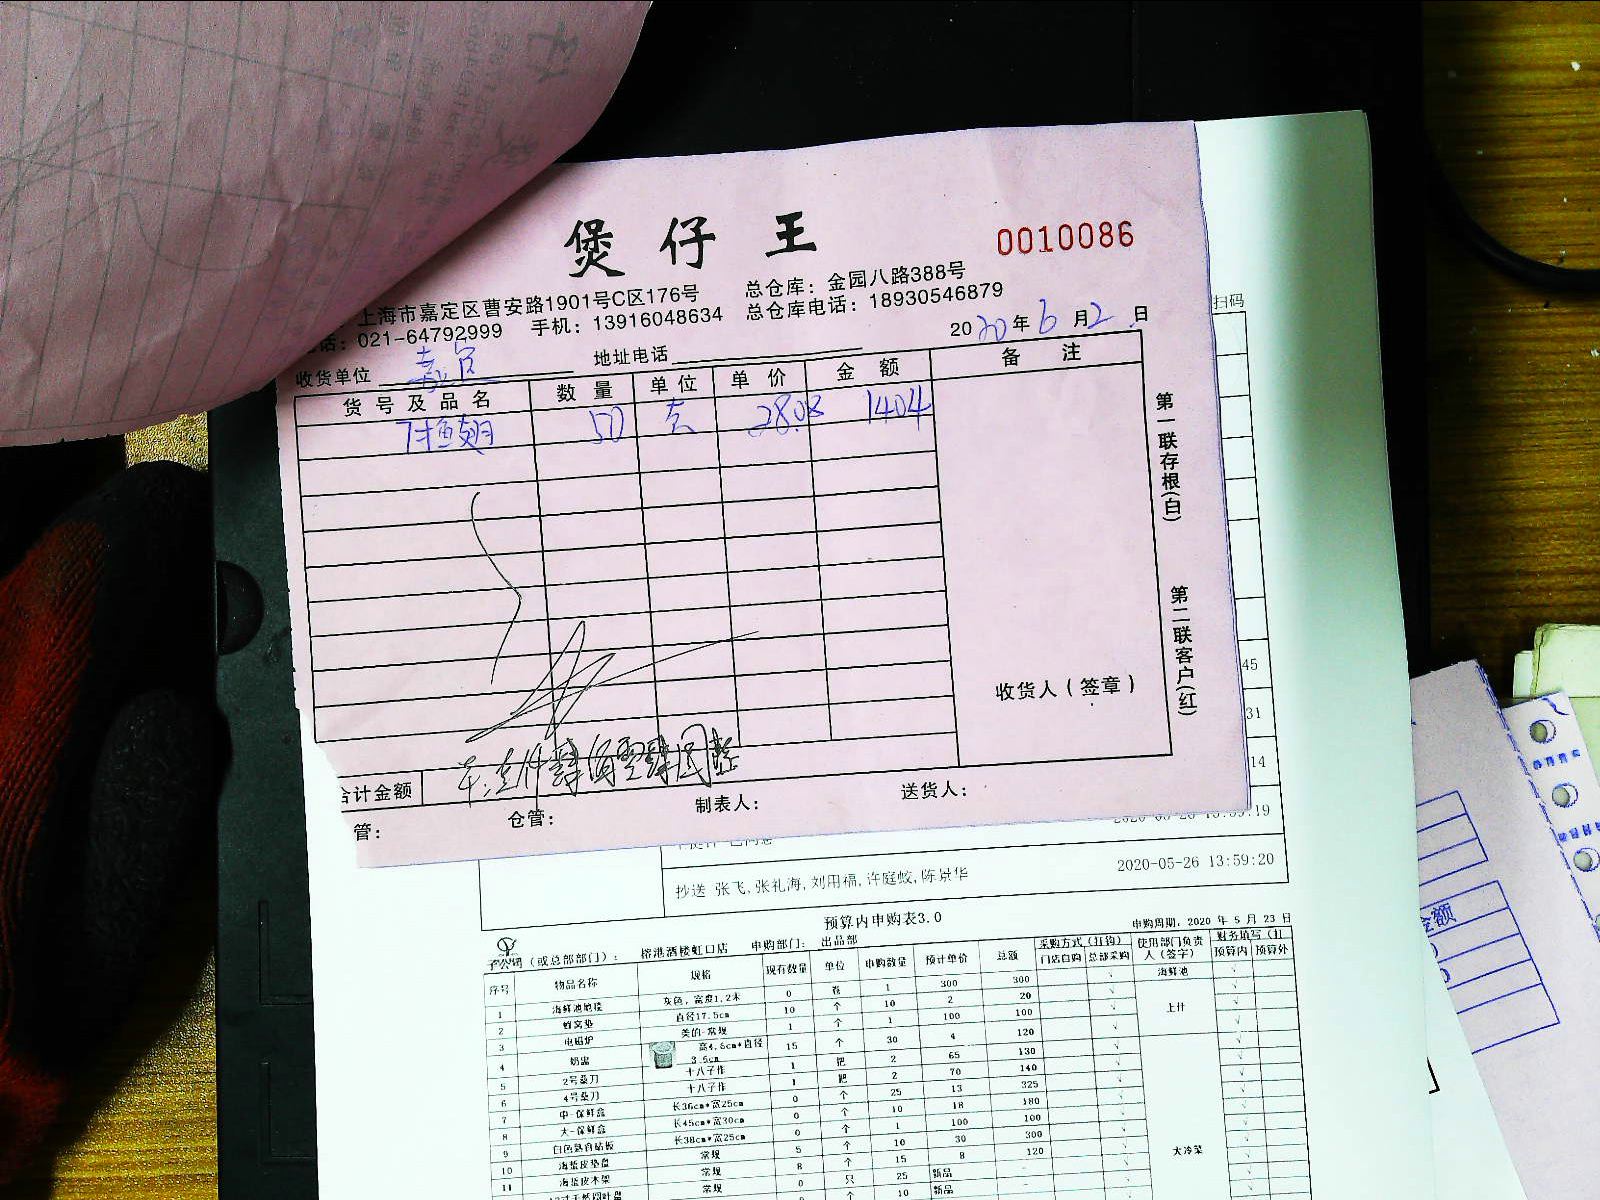 煲仔王
0010086
上海市嘉定区曹安路1901号C区176号 总仓库：金园八路388号
话：021-64792999 手机：13916048634 总仓库电话：18930546879
2020年6月2日
收货单位 嘉定 地址电话
货号及品名 数量 单位 单价 金额 备注
50 28.08 1404
第一联存根(白)
第二联客户(红)
收货人（签章）
合计金额
管： 仓管： 制表人： 送货人：
扫码
45
31
14
抄送 张飞,张礼海,刘用福,许庭蛟,陈景华 2020-05-26 13:59:20
预算内申购表3.0
申购周期：2020 年 5 月 23 日
子公司（或总部部门）： 榕港酒楼虹口店 申购部门： 出品部
序号 物品名称 规格 现有数量 单位 申购数量 预计单价 总额 采购方式（打钩） 使用部门负责人（签字） 财务填写（打
门店自购 总部采购 预算内 预算外
1 海鲜池地毯 灰色，宽度1.2米 0 卷 1 300 300 √ 海鲜池 √
2 蜂窝垫 直径17.5cm 10 个 10 2 20 √ 上什 √
3 电磁炉 美的-常规 1 个 1 100 100 √ √
4 奶盅 高4.6cm*直径3.5cm 15 个 30 4 120 √ √
5 2号桑刀 十八子作 1 把 2 65 130 √ √
6 4号桑刀 十八子作 1 把 2 70 140 √ √
7 中-保鲜盒 长36cm*宽25cm 0 个 25 13 325 √ √
8 大-保鲜盒 长45cm*宽30cm 0 个 10 18 180 √ √
9 白色熟食砧板 长38cm*宽25cm 0 个 1 100 100 √ √
10 海蜇皮垫盘 常规 5 个 10 30 300 √ 大冷菜 √
11 海蜇皮木架 常规 8 个 15 8 120 √ √
常规 0 只 25 新品
个 10 新品
金额